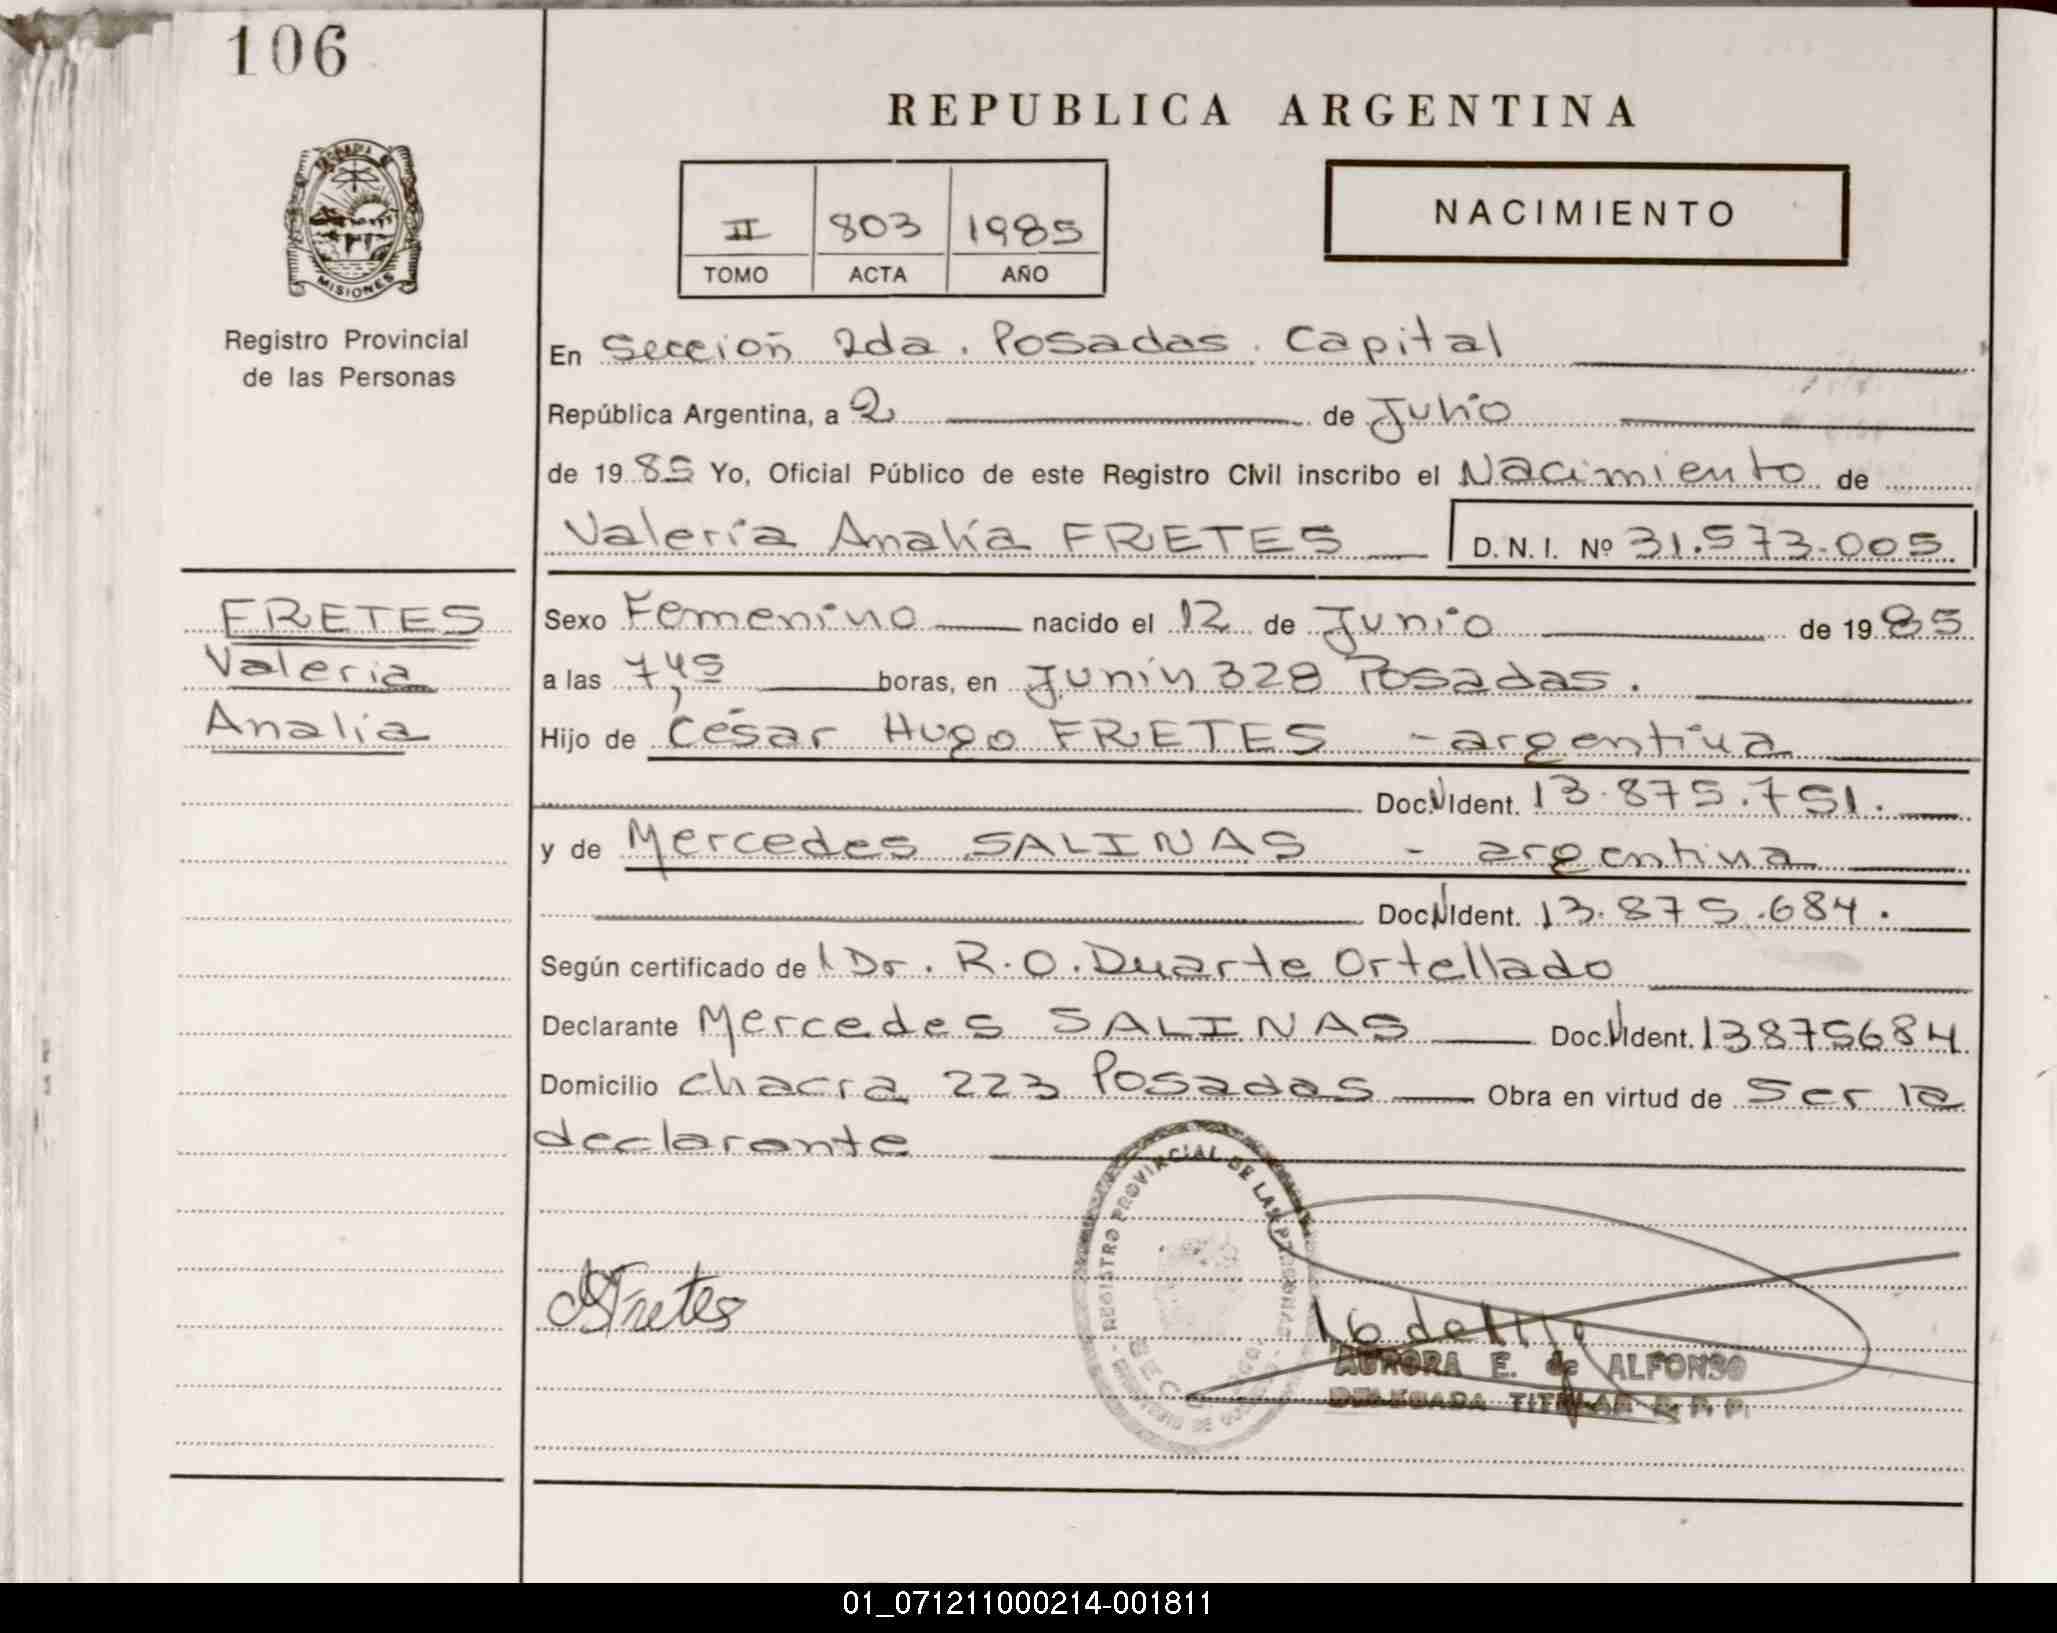 106
REPUBLICA ARGENTINA
MISIONES
Registro Provincial
de las Personas
II 803 1985
TOMO ACTA AÑO
NACIMIENTO
En Sección 2da. Posadas. Capital
República Argentina, a 2 de Julio
de 1985 Yo, Oficial Público de este Registro Civil inscribo el Nacimiento de
Valería Analía FRETES D. N. I. Nº 31.573.005
FRETES
Valeria
Analía
Sexo Femenino nacido el 12 de Junio de 1985
a las 7,45 boras, en Junín 328 Posadas.
Hijo de César Hugo FRETES - argentina
Doc. Ident. 13.875.751.
y de Mercedes SALINAS - argentina
Doc. Ident. 13.875.684.
Según certificado de Dr. R. O. Duarte Ortellado
Declarante Mercedes SALINAS Doc. Ident. 13875684
Domicilio chacra 223 Posadas Obra en virtud de ser la
declarante
REGISTRO PROVINCIAL DE LAS PERSONAS
Fretes
AURORA E. de ALFONSO
DELEGADA TITULAR R. P. P.
01_071211000214-001811